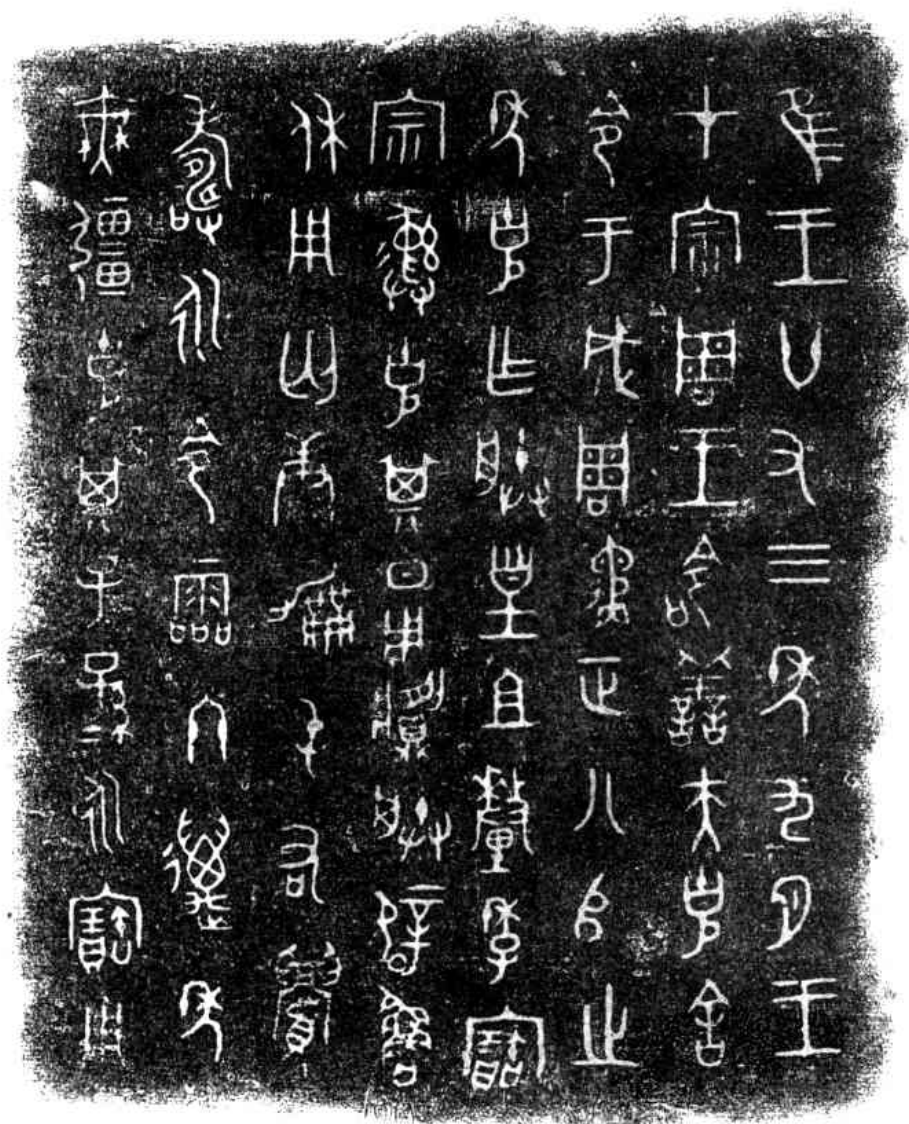 隹王廿又三年九月王
才宗周王命善夫克舍
令于成周遹正八𠂤之
年克乍朕皇且釐季寶
宗彝克其日用𩰬朕辟魯
休用匄康勵屯右眉
壽永令霝冬萬年
無疆克其子孫永寶用